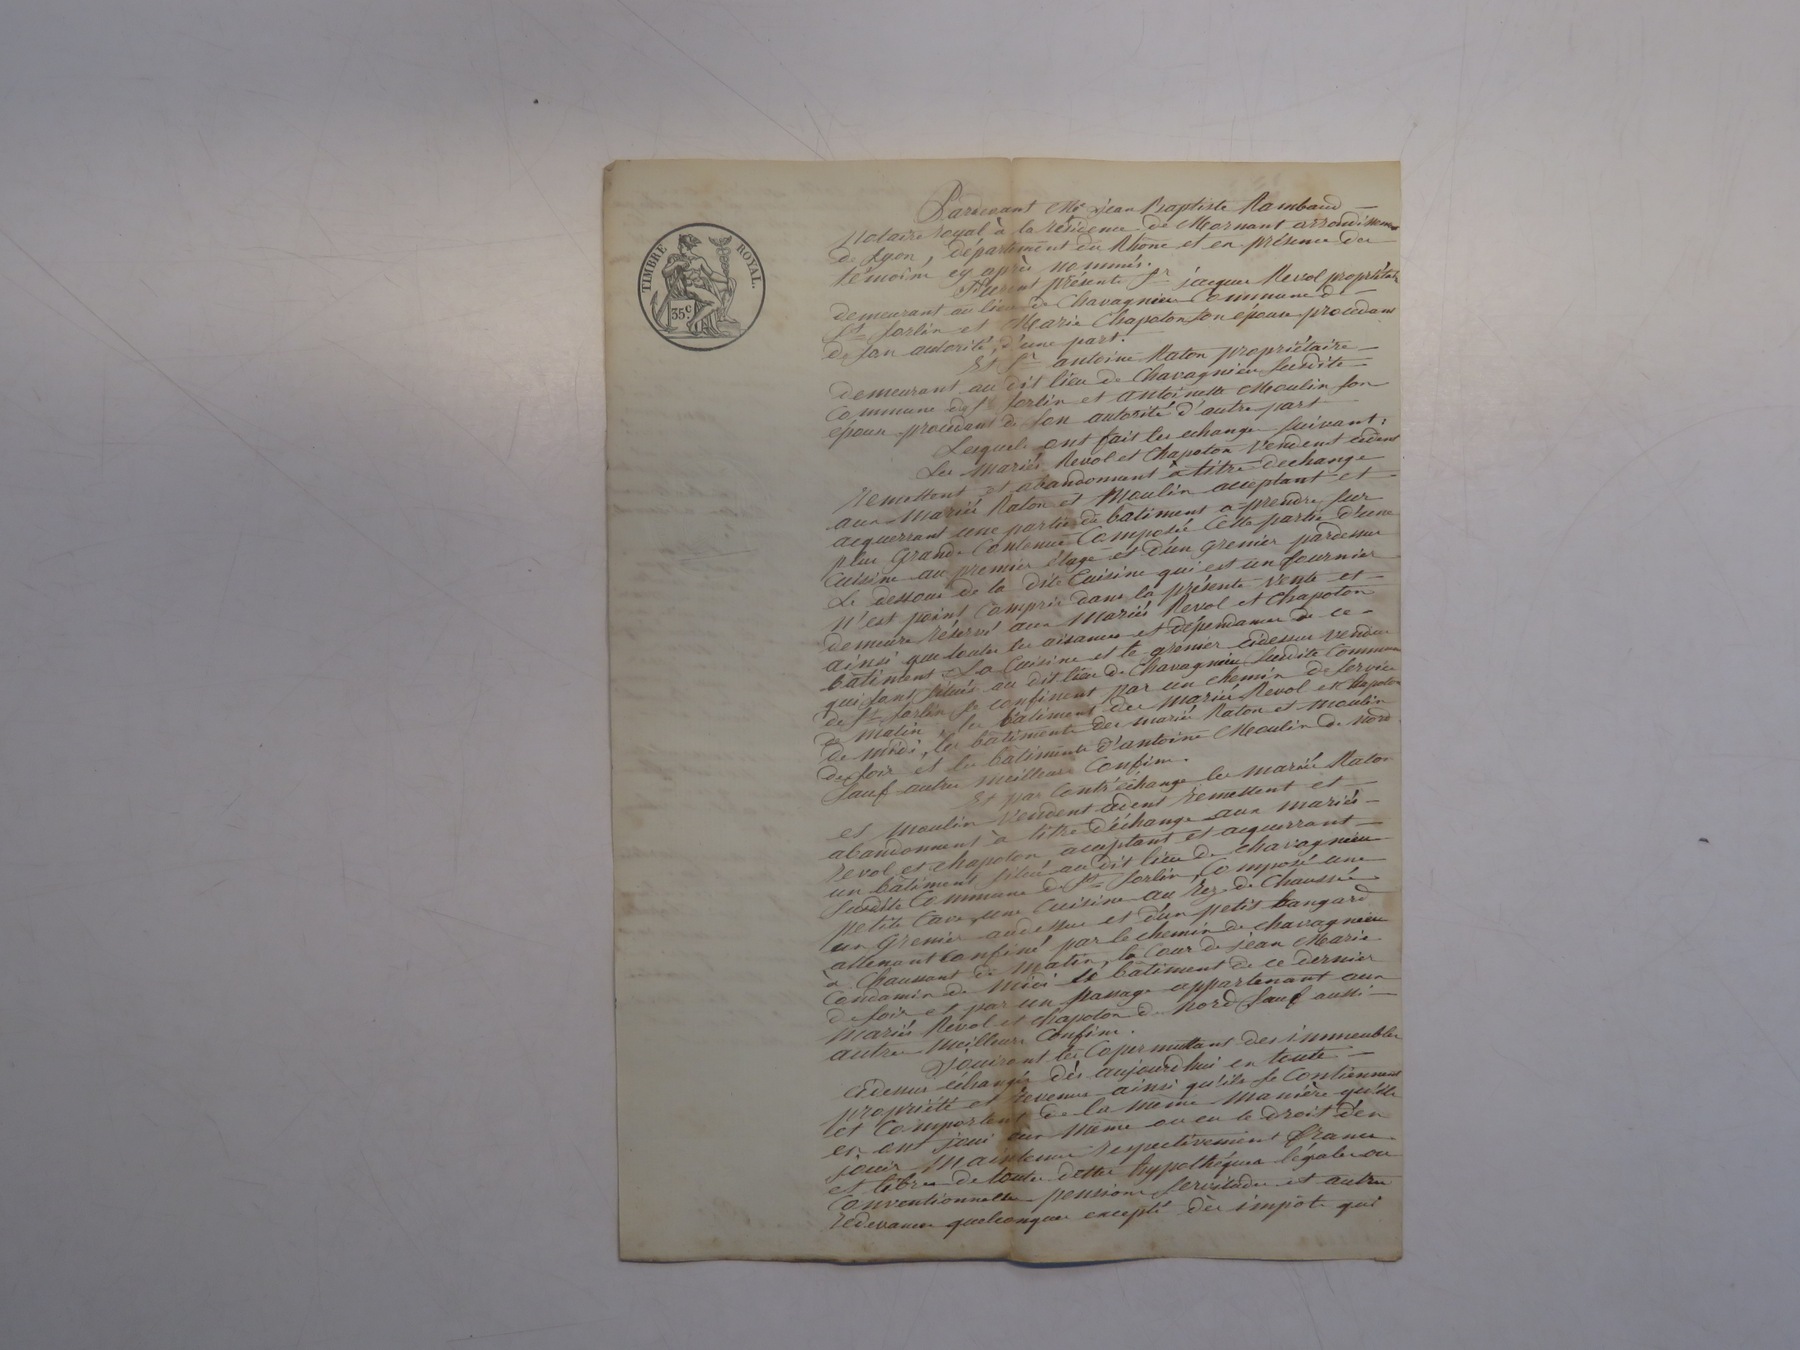 TIMBRE ROYAL.
35 c.
Pardevant Me jean Baptiste Rambaud
Notaire royal à la résidence de Mornant arrondissement
de Lyon, département du Rhône et en présence des
témoins cy après nommés.
Furent présents Sr jacques Revol propriétaire
demeurant au lieu de Chavagnieu Commune de
St Sorlin et Marie Chapoton son epouse procédant
de son autorité, d'une part.
Et Sr antoine Raton propriétaire
demeurant au dit lieu de Chavagnieu susdite
Commune de St Sorlin et antoinette Moulin son
épouse procédant de son autorité d'autre part
Lesquels ont fait les echanges suivant:
Les mariés Revol et Chapoton Vendent cedent
remettent et abandonnent à titre dechange
aux Mariés Raton et Moulin acceptant et
acquerrant une partie de batiment a prendre sur
plus Grande Contenue Composée Cette partie d'une
Cuisine au premier étage et d'un Grenier pardessus
Le dessous de la dite Cuisine qui est un fournier
N'est point Compris dans la présente Vente et
demeure réservé aux Mariés Revol et Chapoton
ainsi que toutes les aisances et dépendances de ce
bâtiment La Cuisine et le grenier cidessus vendus
qui sont situés au dit lieu de Chavagnieu susdite Commune
de St Sorlin se confinent par un chemin de service
de matin, les bâtiment des mariés Revol et Chapoton
de midi, les bâtiments des mariés Raton et Moulin
de soir et les bâtiments d'antoine Moulin de nord
sauf autres meilleurs Confins.
Et par Contréchange les mariés Raton
et Moulin Vendent cédent remettent et
abandonnent à titre d'échange aux mariés
revol et chapoton acceptant et acquerrant
un bâtiment situé au dit lieu de chavagnieu
susdite Commune de St Sorlin, Composé une
petite Cave, une Cuisine au Rez de Chaussée
un Grenier audessus et d'un petit hangard
attenant Confiné par le chemin de chavagnieu
à Chaussant de matin, la Cour de jean Marie
Condamin de Midi le bâtiment de ce dernier
de soir et par un passage appartenant aux
Mariés Revol et chapoton de nord sauf aussi
autres Meilleurs Confins.
Jouiront les Copermuttans des immeubles
cidessus échangés dès aujourd'hui en toute
propriété et revenus ainsi qu'ils se Contiennent
et Comportent de la même manière qu'ils
en ont joui eux même ou eu le droit d'en
jouir Maintenus respectivement francs
et libres de toutes dettes hypothéques légales ou
Conventionnelles pensions servitudes et autres
redevances quelconques excepté dès impôts qui